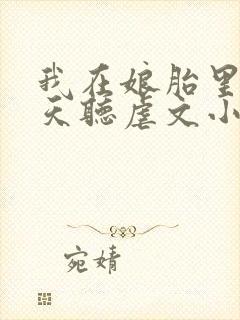 我在娘胎里
天听虐文小
宛婧